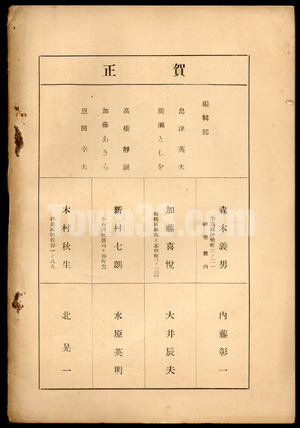 賀正
編輯部
島津英夫
廣瀬としを
高橋靜湖
加藤あきら
恩田幸夫
森本義男
加藤喜悅
新村七朗
木村秋生
内藤彰一
大井辰夫
水原英明
北晃一